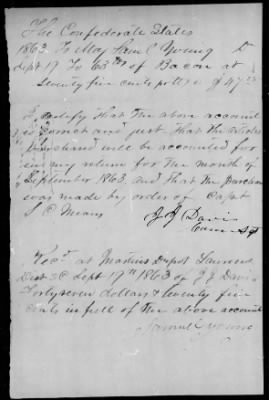 The Confederate States
1863 To Maj Sam C Young Dr
Sept 19 To 63 lbs of Bacon at
Seventy five cents pr lb $ 47.25
I certify that the above account
is correct and just that the articles
purchased will be accounted for
in my return for the month of
September 1863, and that the purchase
was made by order of Capt
S C Means
J J Davis
Com Agt
Recd at Martins Depot Laurens
Dist SC Sept 19th 1863 of J J Davis
Forty seven dollars & twenty five
cents in full of the above account
Samuel C Young